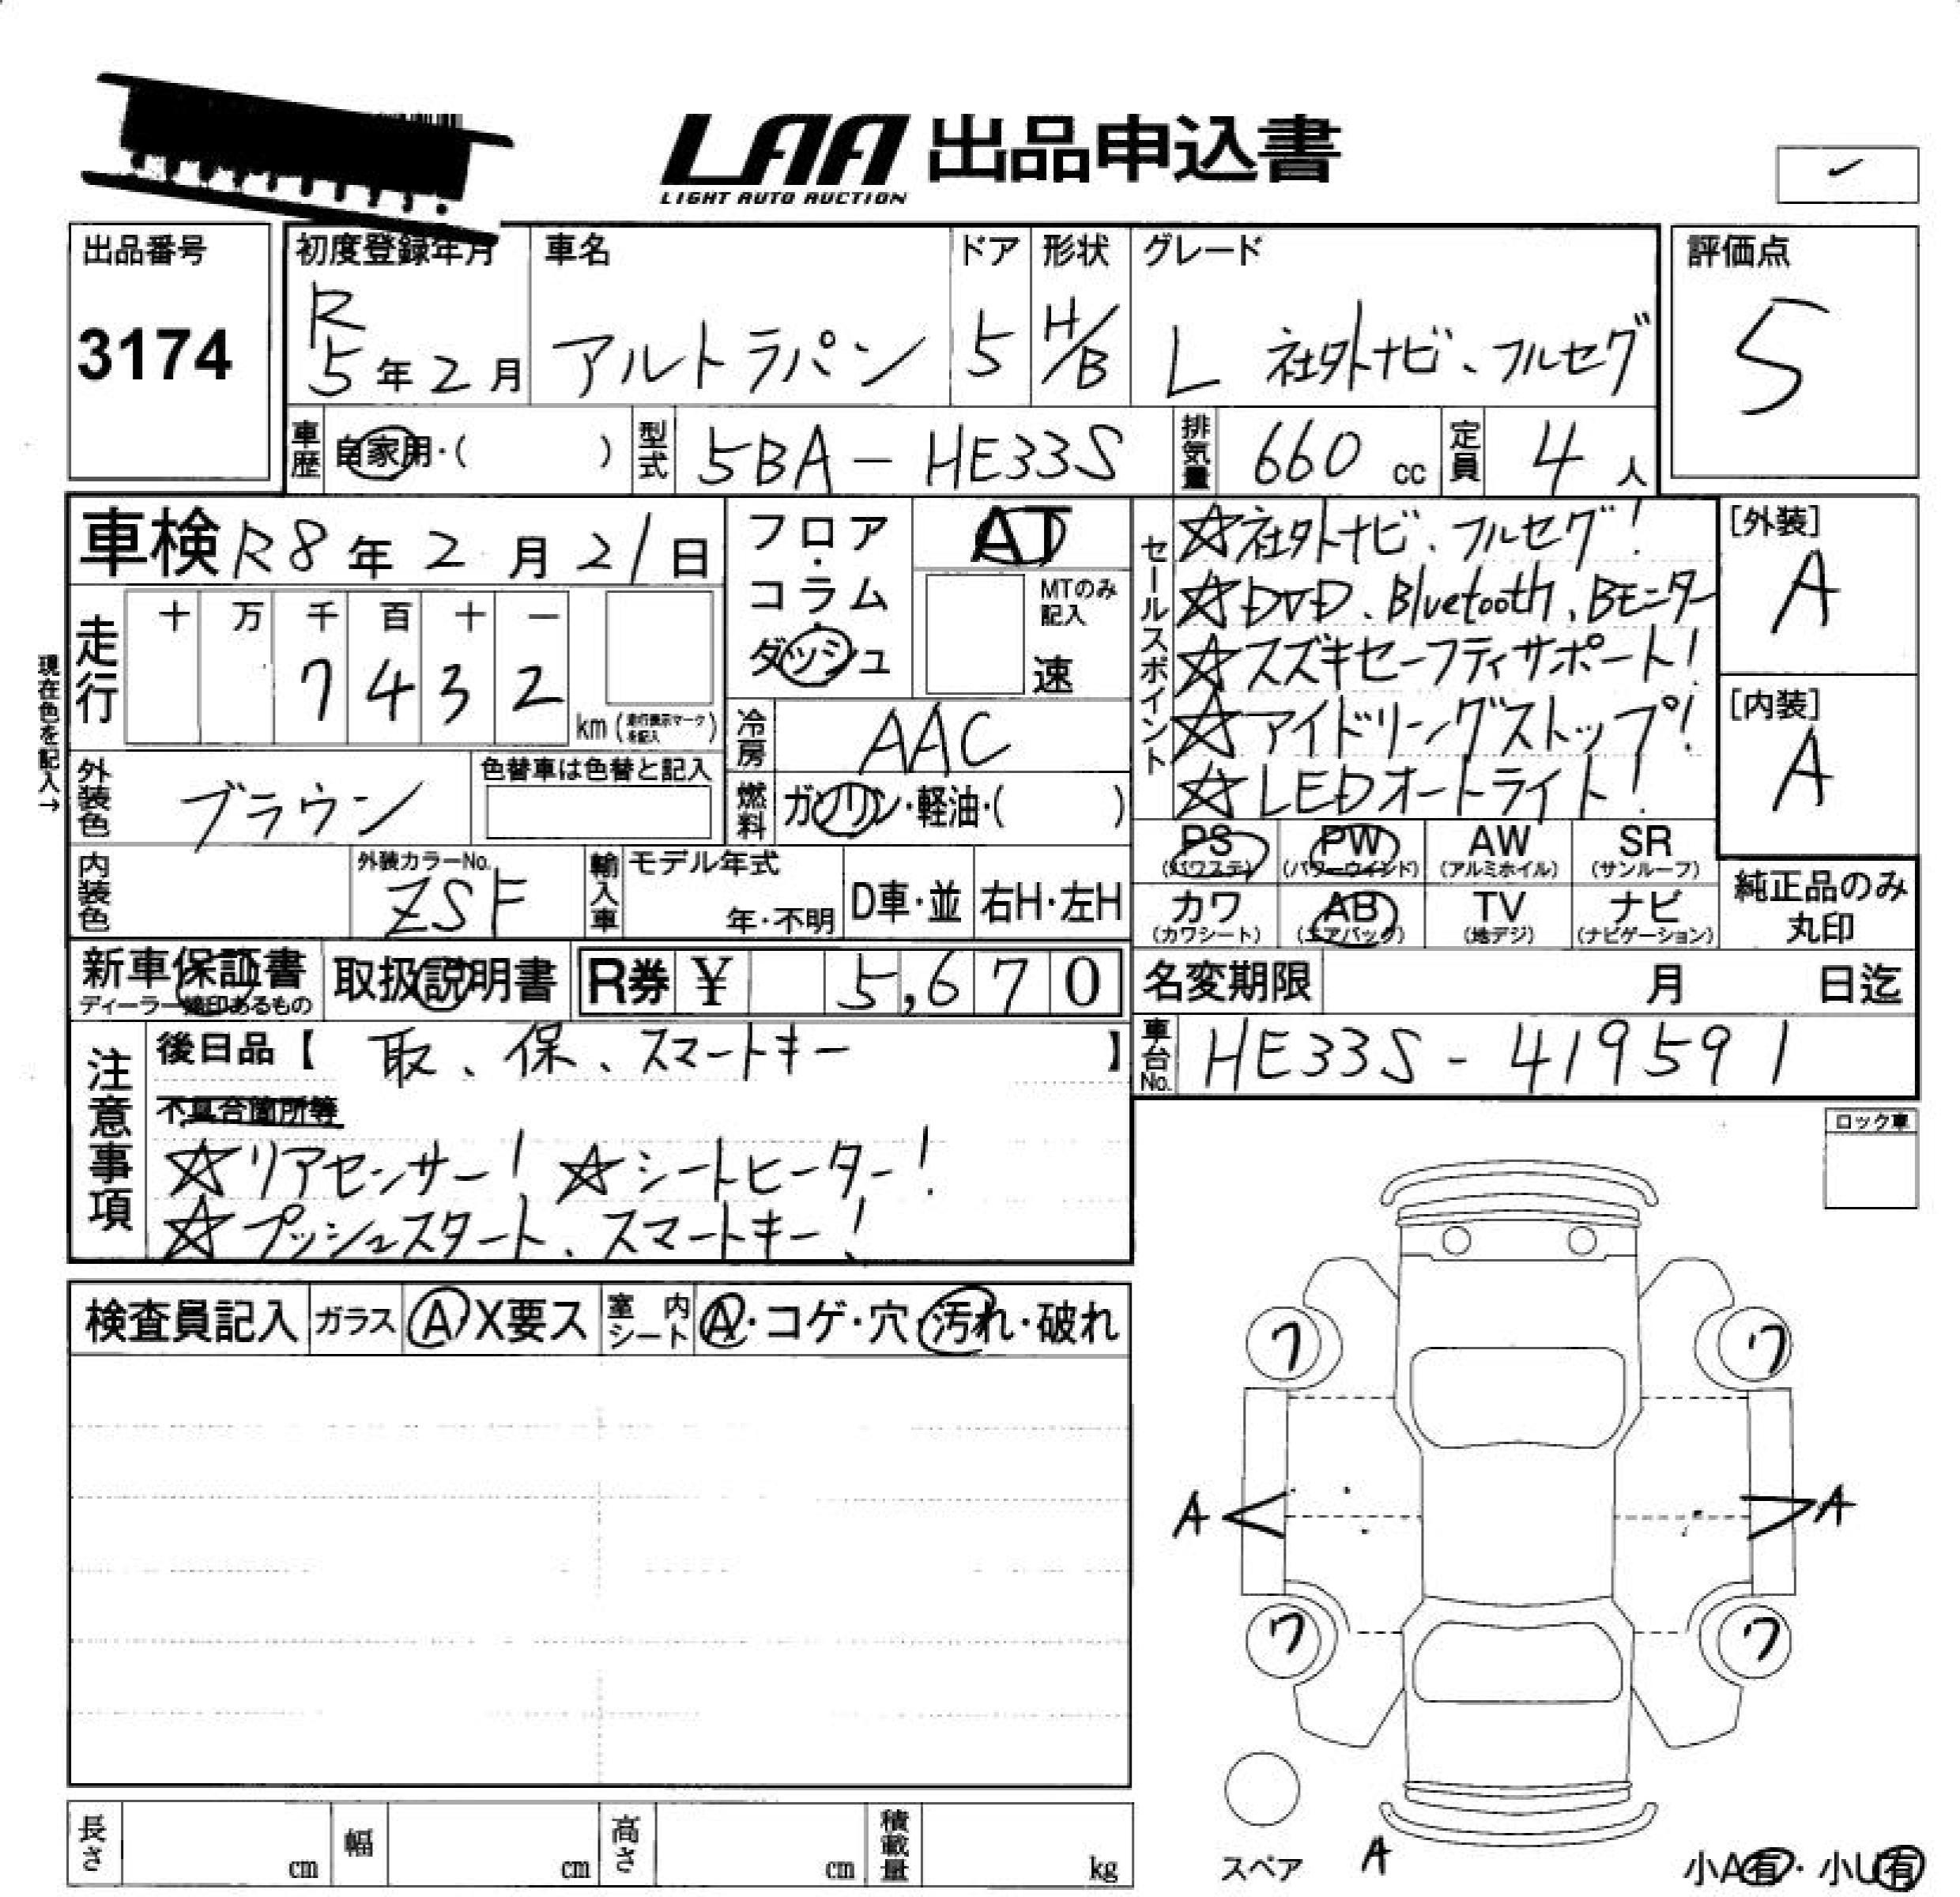 LAA 出品申込書
LIGHT AUTO AUCTION
出品番号
3174
初度登録年月
R
5年2月
車名
アルトラパン
ドア
5
形状
H/B
グレード
L 社外ナビ、フルセグ
評価点
5
車歴
自家用・( )
型式
5BA-HE33S
排気量
660 cc
定員
4人
車検 R8年2月21日
フロア・コラム・ダッシュ
AT
MTのみ記入
速
走行
十 万 千 百 十 一
7 4 3 2
km (走行表示マークを記入)
現在色を記入→
冷房
AAC
燃料
ガソリン・軽油・( )
外装色
ブラウン
色替車は色替と記入
内装色
外装カラーNo.
ZSF
輸入車
モデル年式
年・不明
D車・並
右H・左H
セールスポイント
☆社外ナビ、フルセグ!
☆DVD、Bluetooth、Bモニター
☆スズキセーフティサポート!
☆アイドリングストップ!
☆LEDオートライト!
[外装]
A
[内装]
A
PS (パワステ)
PW (パワーウインド)
AW (アルミホイル)
SR (サンルーフ)
カワ (カワシート)
AB (エアバック)
TV (地デジ)
ナビ (ナビゲーション)
純正品のみ丸印
新車保証書
ディーラー捺印あるもの
取扱説明書
R券 ¥ 5,670
名変期限 月 日迄
車台No.
HE33S-419591
注意事項
後日品【 取、保、スマートキー 】
不具合箇所等
☆リアセンサー! ☆シートヒーター!
☆プッシュスタート、スマートキー!
ロック車
検査員記入
ガラス
A X要ス
室内シート
A・コゲ・穴・汚れ・破れ
ワ ワ
A A
ワ ワ
スペア
A
小A有・小U有
長さ cm
幅 cm
高さ cm
積載量 kg